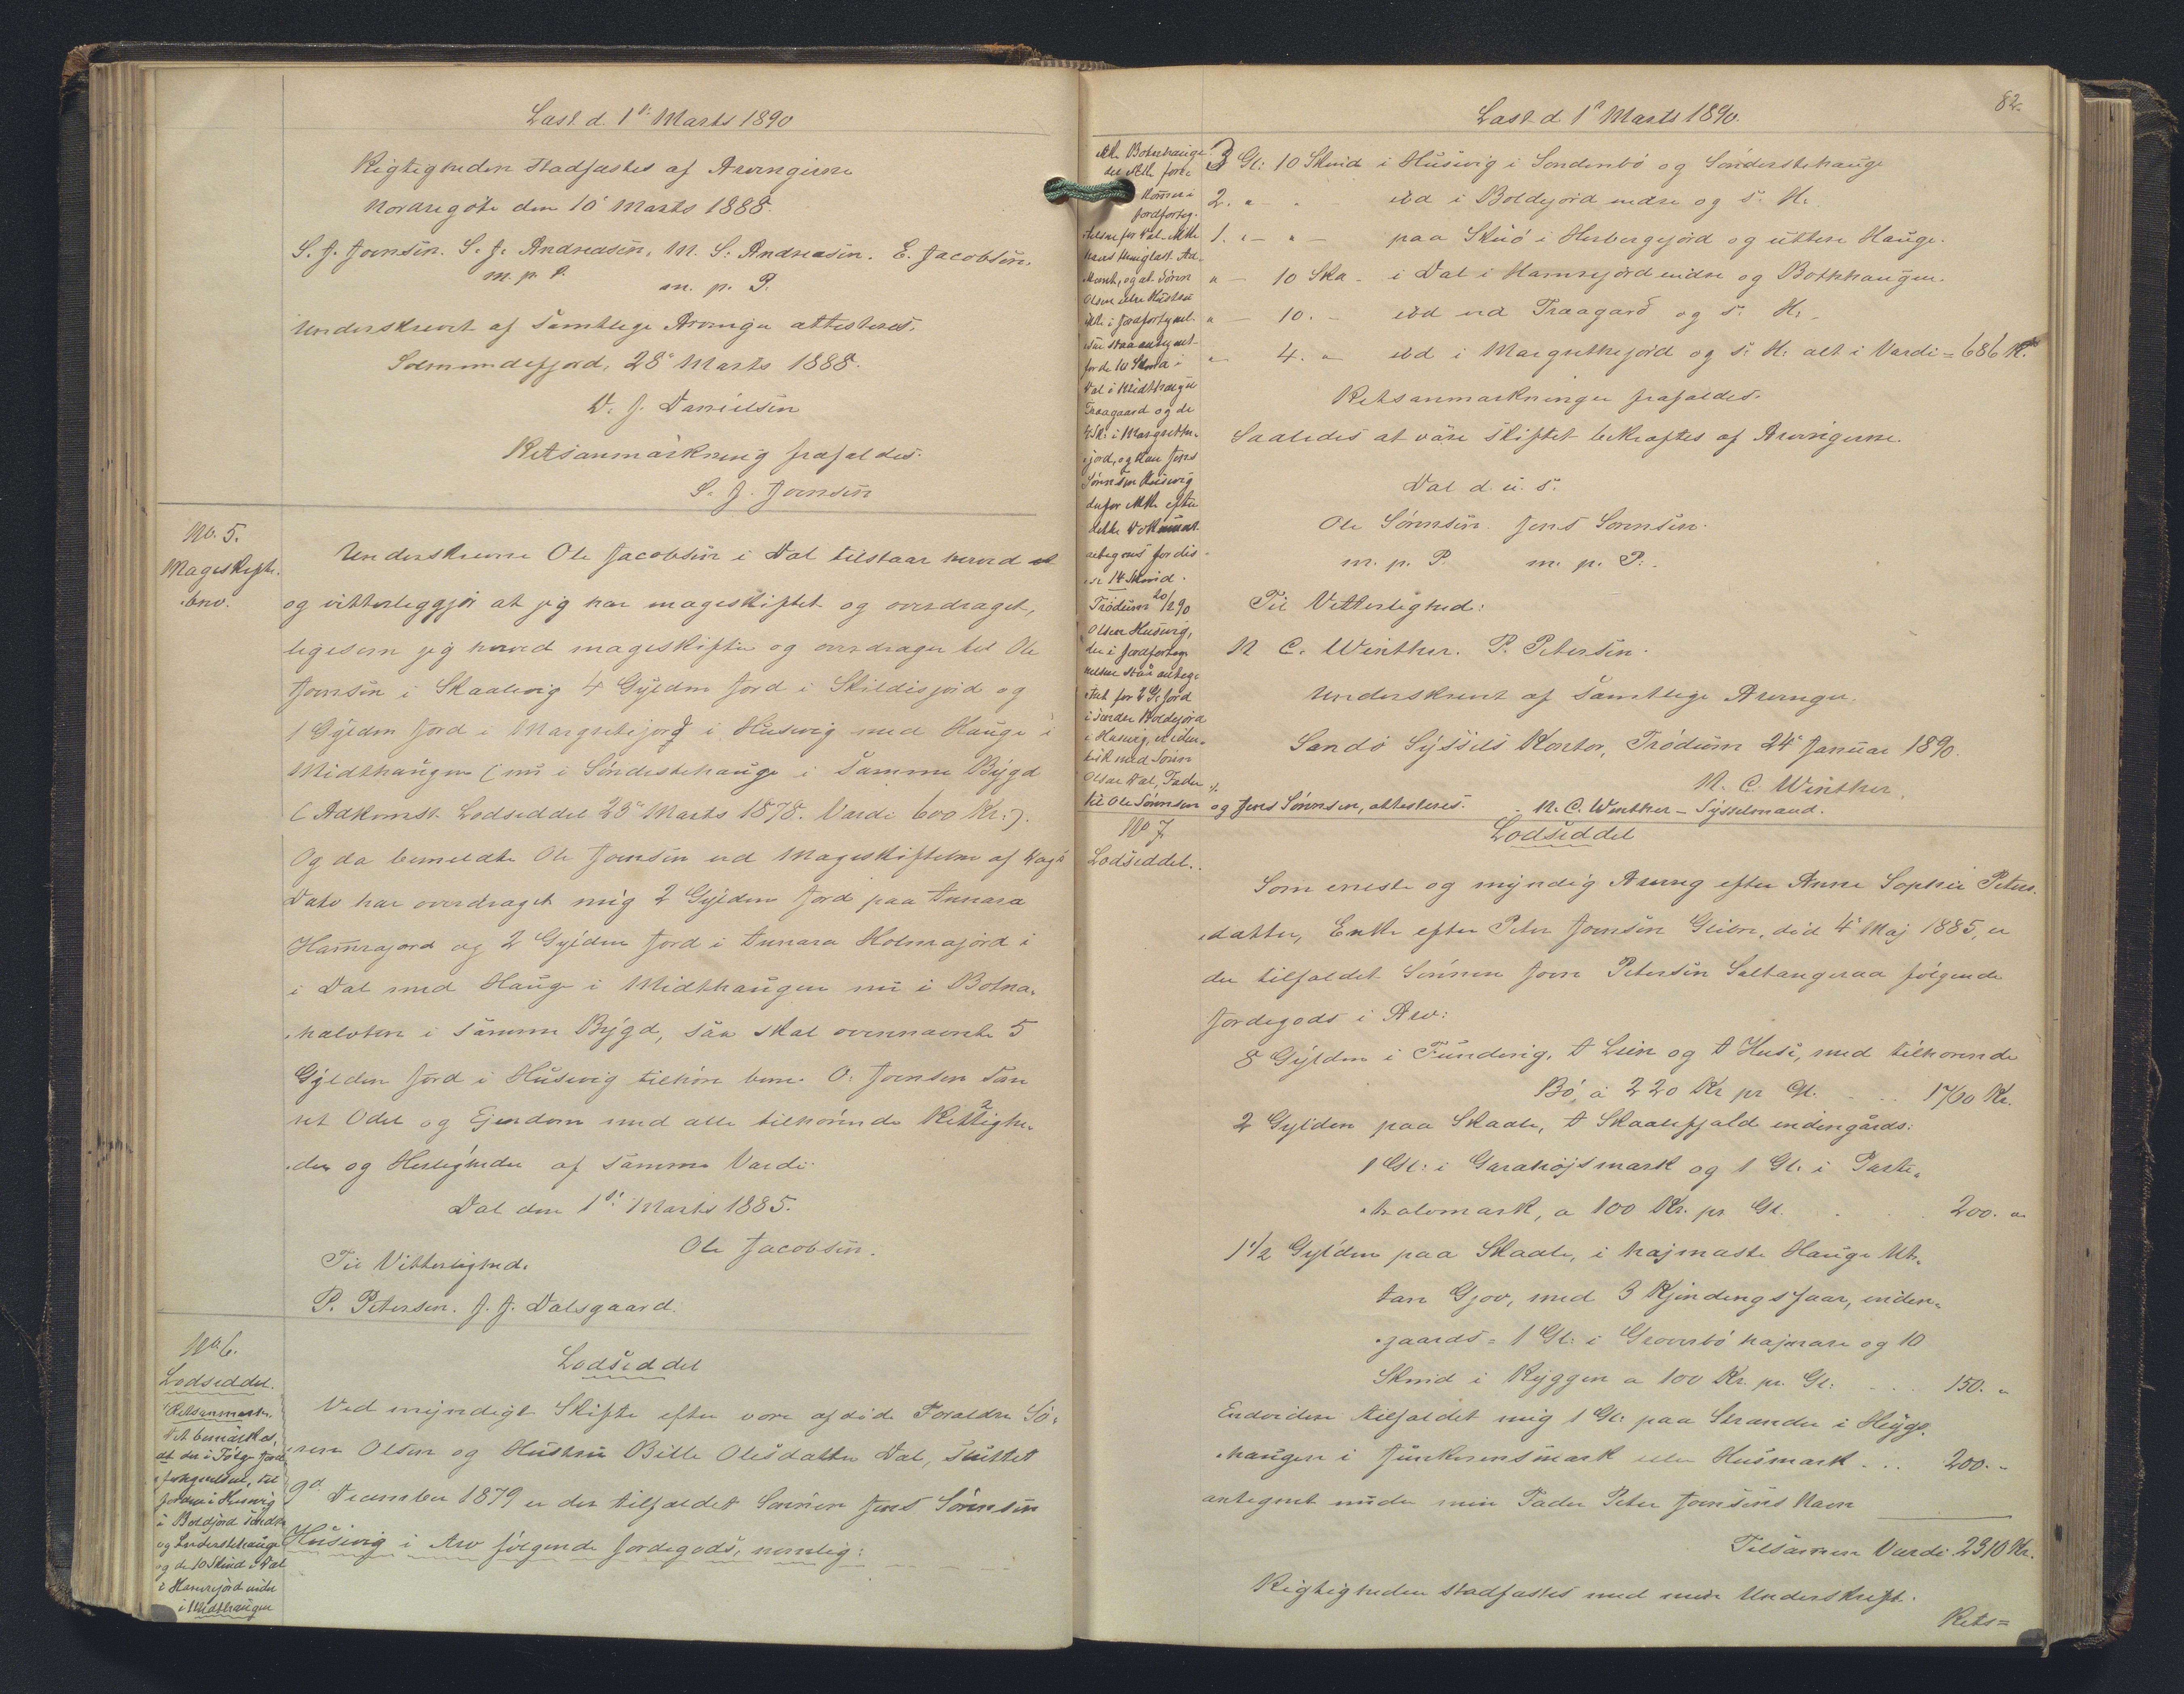 Læst d. 1ª Marts 1890
Rigtigheden stadfæstes af Arvingerne
Nordregøte den 10' Marts 1888.
S. J. Joensen. S. J. Andreasen. M. S. Andreasen. E. Jacobsen.
m. p. P.
m. p. P.
Underskrevet af samtlige Arvinger attesteres.
Solmundefjord, 28' Marts 1888.
D. J. Danielsen
Retsanmærkning frafaldes.
S. J. Joensen
No. 5.
Mageskifte-
brev.
Underskrevne Ole Jacobsen i Dal tilstaar herved at
og vitterliggjør at jeg har mageskiftet og overdraget,
ligesom jeg herved mageskifter og overdrager til Ole
Joensen i Skaalevig 4 Gylden Jord i Skildisjord og
1 Gylden Jord i Margretejord i Husevig med Hauge i
Midthaugen (nu i Søndestehauge i samme Bygd
(Adkomst. Lodseddel 28' Marts 1878. Værdi 600 Kr.).
Og da bemeldte Ole Joensen ved Mageskiftebrev af Dags
Dato har overdraget mig 2 Gylden Jord paa Innara
Hamrajord og 2 Gylden Jord i Innara Holmajord i
i Dal med Hauge i Midthaugen nu i Botna-
halvten i samme Bygd, saa skal ovennævnte 5
Gylden Jord i Husevig tilhøre bem. O. Joensen som
ret Odel og Ejendom med alle tilhørende Rettighe-
der og Herligheder af samme Værdi.
Dal den 1ste Marts 1885.
Ole Jacobsen.
Til Vitterlighed.
P. Petersen. J. J. Dalsgaard.
No. 6.
Lodseddel.
Lodseddel
Retsanmærkn.
Det bemærkes,
at der i Følge Jord
fortegnelsen, til
Jorden i Husevig
i Boldjord søndre
og Søndestehauge
og de 10 Skind i Dal
i Hamrejord indre
i Midthaugen
Ved myndigt Skifte efter vore afdøde Forældre Sø-
ren Olsen og Hustru Bille Olesdatter Dal, sluttet
9d December 1879 er der tilfaldet Sønnen Jens Sørensen
Husevig i Arv følgende Jordegods, nemlig:
Læst d 1ª Marts 1890.
82.
ikke Botnhauge.
der ikke fore-
kommer i
Jordforteg-
nelsen for Dal. Ikke
haves Hauglast. Ad-
komst, og at Søren
Olsen eller Hustru
ikke i Jordfortegnel-
sen staa antegnet
for de 10 Skind i
Dal i Midthauge
Traagaard og de
4 Sk: i Margrethe-
jord, og kan Jens
Sørensen Husevig
derfor ikke efter
dette Dokument
antegnes for dis-
se 14 Skind.
Trødum 20/2 90
Olsen Husevig,
der i Jordforteg-
nelsen staar anteg-
net for 2 Gl Jord
i søndre Boldejord
i Husevig, er iden-
tisk med Søren
Olsen Dal, Fader
til Ole Sørensen og Jens Sørensen, attesteres. N. C. Winther - Sysselmand.
3 Gl: 10 Skind i Husevig i Søndenbø og Søndestehauge
2. " - " ibd i Boldejord nedre og s. H.
1. " - " - paa Skuø i Herbergejord og uttere Hauge.
" - 10 Sk" - i Dal i Hamrejord indre og Bothhaugen.
" - 10. - ibd ved Traagard og s. H.
" - 4. " ibd i Margrethejord og s. H. alt i Værdi = 686 Kr.
Retsanmærkninger frafaldes.
Saaledes at være skiftet bekræftes af Arvingerne.
Dal d. u. s.
Ole Sørensen. Jens Sørensen.
m. p. P. m. p. P.
Til Vitterlighed:
N C. Winther. P. Petersen.
Underskrevet af samtlige Arvinger.
Sandø Syssels Kontor, Trødum 24' Januar 1890.
N. C. Winther
No 7.
Lodseddel.
Lodseddel
Som eneste og myndig Arving efter Anne Sophie Peters-
datter, Enke efter Peter Joensen Glibre, død 4' Maj 1885, er
der tilfaldet Sønnen Joen Petersen Saltangeraa følgende
Jordegods i Arv:
8 Gylden i Fundring, A Lien og A Husi, med tilhørende
Bø, a 220 Kr pr Gl. . . . 1760 Kr.
2 Gylden paa Skaale, A Skaalefjald indengårds:
1 Gl: i Garahøjsmark og 1 Gl: i Parte-
halvmark, a 100 Kr. pr Gl. . . . 200. "
1 1/2 Gylden paa Skaale, i hajmaste Hauge Ut-
tan Gjov, med 3 Kjendingsfaar, inden-
gaards = 1 Gl: i Groverbø hajmare og 10
Skind i Ryggen a 100 Kr. pr. Gl: . . . 150. "
Endvidere tilfaldet mig 1 Gl: paa Strander i Heyga-
haugen i Junkerensmark eller Husmark . . . 200. "
antegnet under min Fader Peter Joensens Navn
Tilsammen Værdi 2310 Kr.
Rigtigheden stadfæstes med min Underskrift.
Rets=